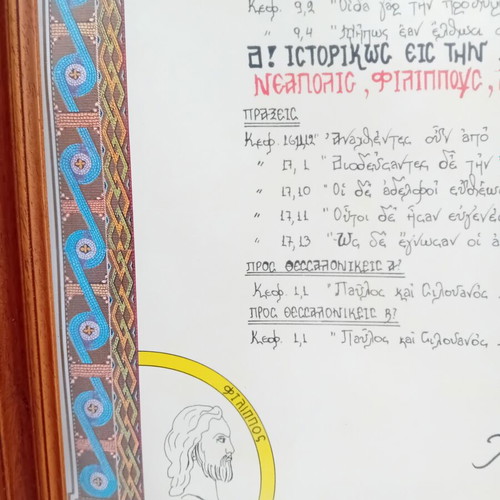 Κεφ. 9,2 "Οἶδα γὰρ τὴν
" 9,4 "Μήπως ἐὰν ἔλθωσι
Α! ΙΣΤΟΡΙΚΩΣ ΕΙΣ ΤΗΝ
ΝΕΑΠΟΛΙΣ, ΦΙΛΙΠΠΟΥΣ,
ΠΡΑΞΕΙΣ
Κεφ. 16,11,12 "Ἀναχθέντες οὖν ἀπὸ
" 17,1 "Διοδεύσαντες δὲ τὴν
" 17,10 "Οἱ δὲ ἀδελφοὶ εὐθέως
" 17,11 "Οὗτοι δὲ ἦσαν εὐγενέσ
" 17,13 "Ὡς δὲ ἔγνωσαν οἱ ἀ
ΠΡΟΣ ΘΕΣΣΑΛΟΝΙΚΕΙΣ Α!
Κεφ. 1,1 "Παῦλος καὶ Σιλουανὸς
ΠΡΟΣ ΘΕΣΣΑΛΟΝΙΚΕΙΣ Β!
Κεφ. 1,1 "Παῦλος καὶ Σιλουανὸς
ΦΙΛΙΠΠΟΣ